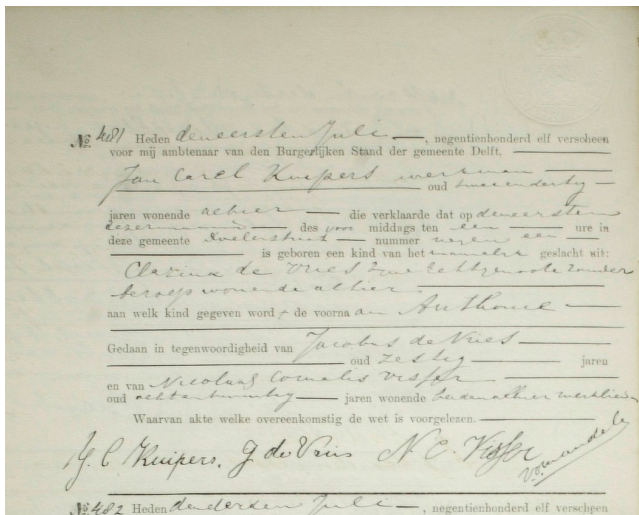 No. 481 Heden den eersten Juli, negentienhonderd elf verscheen
voor mij ambtenaar van den Burgerlijken Stand der gemeente Delft,
Jan Carel Kuipers werkman
oud tweeendertig
jaren wonende alhier die verklaarde dat op den eersten
dezer maand des voor middags ten een ure in
deze gemeente Doelenstraat nummer negen een
is geboren een kind van het mannelijk geslacht uit:
Clazina de Vries zijne echtgenoote zonder
beroep wonende alhier
aan welk kind gegeven word de voorna am Anthonie
Gedaan in tegenwoordigheid van Jacobus de Vries
oud zestig jaren
en van Nicolaas Cornelis Visser
oud achtentwintig jaren wonende beiden alhier werklieden
Waarvan akte welke overeenkomstig de wet is voorgelezen.
J. C Kuipers. J de Vries N C. Visser
No. 482 Heden den dersen Juli, negentienhonderd elf verscheen